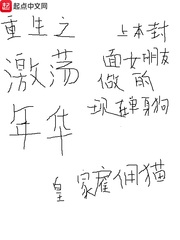 起点中文网
重生之
激荡
年华
上本封
面女朋友
做的
现在单身狗
皇家雇佣猫